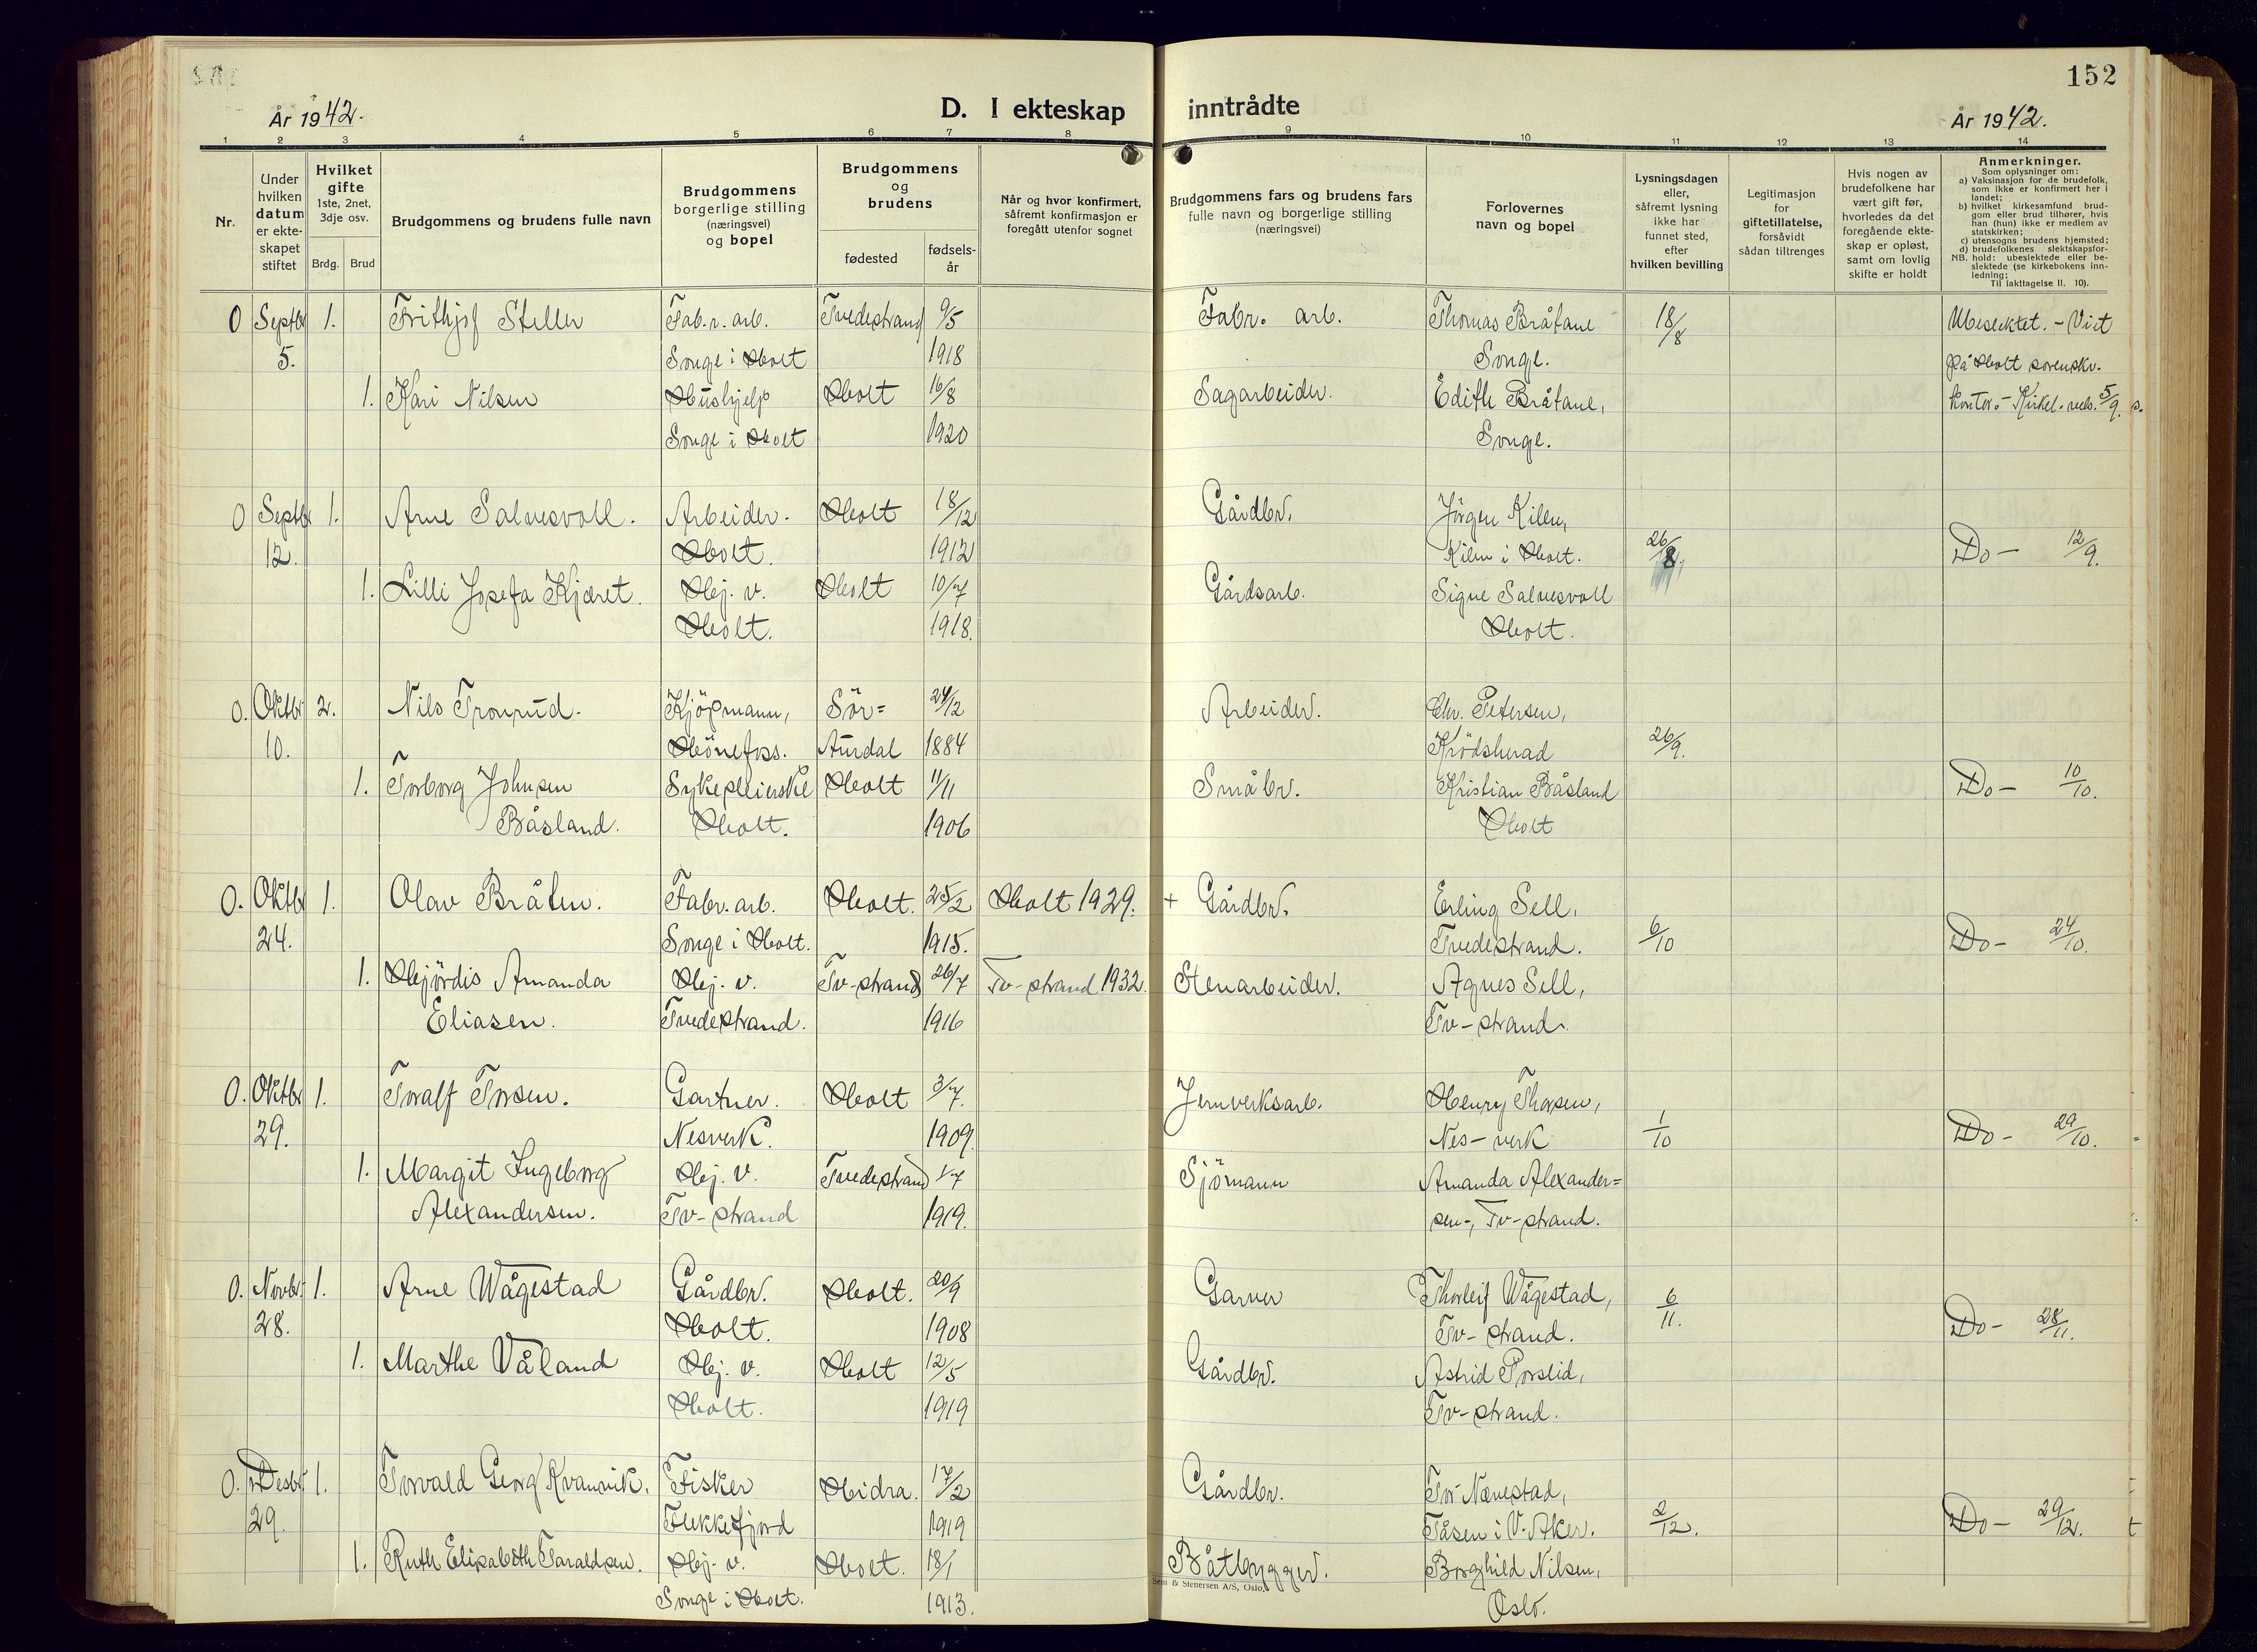 152
År 1942.
D. I ekteskap inntrådte
År 1942.
1 2 3 4 5 6 7 8 9 10 11 12 13 14
Nr.
Under hvilken datum er ekteskapet stiftet
Hvilket gifte 1ste, 2net, 3dje osv.
Brdg. Brud
Brudgommens og brudens fulle navn
Brudgommens borgerlige stilling (næringsvei) og bopel
Brudgommens og brudens
fødested
fødselsår
Når og hvor konfirmert, såfremt konfirmasjon er foregått utenfor sognet
Brudgommens fars og brudens fars fulle navn og borgerlige stilling (næringsvei)
Forlovernes navn og bopel
Lysningsdagen eller, såfremt lysning ikke har funnet sted, efter hvilken bevilling
Legitimasjon for giftetillatelse, forsåvidt sådan tiltrenges
Hvis nogen av brudefolkene har vært gift før, hvorledes da det foregående ekteskap er opløst, samt om lovlig skifte er holdt
Anmerkninger.
Som oplysninger om:
a) Vaksinasjon for de brudefolk, som ikke er konfirmert her i landet;
b) hvilket kirkesamfund brudgom eller brud tilhører, hvis han (hun) ikke er medlem av statskirken;
c) utensogns brudens hjemsted;
d) brudefolkenes slektskapsforhold: ubeslektede eller beslektede (se kirkebokens innledning;
NB. Til iakttagelse II. 10).
0 Septbr 1. Frithjof Steller Fabr. arb. Tvedestrand 9/5 Fabr. arb. Thomas Bråtane 18/8 Ubeslektet. - Viet
5. Songe i Holt 1918 Songe. på Holt sorenskr.
1. Kari Nilsen Hushjelp Holt 16/8 Sagarbeider. Edith Bråtane, kontor. - Kirkel. vels. 5/9. s.
Songe i Holt 1920 Songe.
0 Septbr 1. Arne Salvesvoll. Arbeider. Holt 18/12 Gårdbr. Jörgen Kilen,
12. Holt. 1912 Kilen i Holt. 26/8. Do - 12/9.
1. Lilli Josefa Kjæret. Hj. v. Holt 10/7 Gårdsarb. Signe Salvesvoll
Holt. 1918. Holt.
0. Oktbr 2. Nils Tronrud. Kjöpmann, Sör= 24/2 Arbeider. Chr. Petersen,
10. Hönefoss. Aurdal 1884 Krødsherad 26/9.
1. Torborg Johnsen Sykepleierske Holt 11/11 Småbr. Kristian Båsland Do - 10/10.
Båsland. Holt. 1906 Holt
0. Oktbr 1. Olav Bråten. Fabr. arb. Holt. 25/2 Holt 1929. + Gårdbr. Erling Sell,
24. Songe i Holt. 1915. Tvedestrand. 6/10 Do - 24/10.
1. Hjördis Amanda Hj. v. Tv-strand 26/7 Tv-strand 1932. Stenarbeider. Agnes Sell,
Eliasen. Tvedestrand. 1916 Tv-strand.
0. Oktbr 1. Toralf Torsen. Gartner. Holt 3/7. Jernverksarb. Henry Thorsen,
29. Nesverk. 1909. Nes-verk 1/10 Do - 29/10.
1. Margit Ingeborg Hj. v. Tvedestrand 1/7 Sjömann Amanda Alexander=
Alexandersen. Tv-strand 1919. sen-, Tv-strand.
0. Novbr. 1. Arne Wågestad Gårdbr. Holt. 20/9 Garver Thorleif Wågestad, 6/11.
28. Holt. 1908 Tv-strand. Do - 28/11.
1. Marthe Våland Hj. v. Holt 12/5 Gårdbr. Astrid Porslid,
Holt. 1919 Tv-strand.
0. Desbr 1. Torvald Georg Kvannvik. Fisker Hidra. 17/2 Gårdbr. Tor Nænestad,
29. Flekkefjord 1919 Tåsen i V. Aker. 2/12. Do - 29/12. t
1. Ruth Elisabeth Taraldsen. Hj. v. Holt. 18/1 Båtbygger. Borghild Nilsen,
Sem & Stenersen A/S, Oslo.
Songe i Holt. 1913. Oslo.